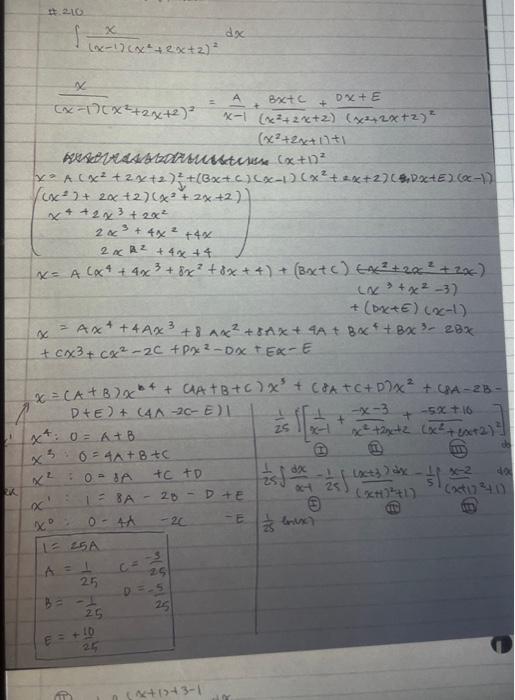 #210
∫ x / (x-1)(x²+2x+2)² dx
x / (x-1)(x²+2x+2)² = A / x-1 + Bx+C / (x²+2x+2) + Dx+E / (x²+2x+2)²
(x²+2x+1)+1
(x+1)²
x = A(x²+2x+2)² + (Bx+C)(x-1)(x²+2x+2)(Dx+E)(x-1)
(x²)+2x+2)(x²+2x+2)
x⁴+2x³+2x²
2x³+4x²+4x
2x²+4x+4
x = A(x⁴+4x³+8x²+8x+4) + (Bx+C)
(x³+x²-3)
+(Dx+E)(x-1)
x = Ax⁴+4Ax³+8Ax²+8Ax+4A+Bx⁴+Bx³-2Bx
+Cx³+Cx²-2C+Dx²-Dx+Ex-E
x=(A+B)x⁴+(4A+B+C)x³+(8A+C+D)x²+(8A-2B-
D+E)+(4A-2C-E)1
x⁴: 0=A+B
x³: 0=4A+B+C
x²: 0=8A +C+D
x¹: 1=8A-2B-D+E
x⁰: 0-4A -2C -E
1=25A
A = 1/25 C = -3/25
B = -1/25 D = -5/25
E = +10/25
1/25 ∫[1/x-1 + -x-3 / x²+2x+2 + -5x+10 / (x²+2x+2)²]
I II III
1/25 ∫ dx / x-1 - 1/25 ∫ (x+3)dx / (x+1)²+1) - 1/5 ∫ x-2 / (x+1)²+1) dx
I II III
1/25 ln
(x+1)+3-1